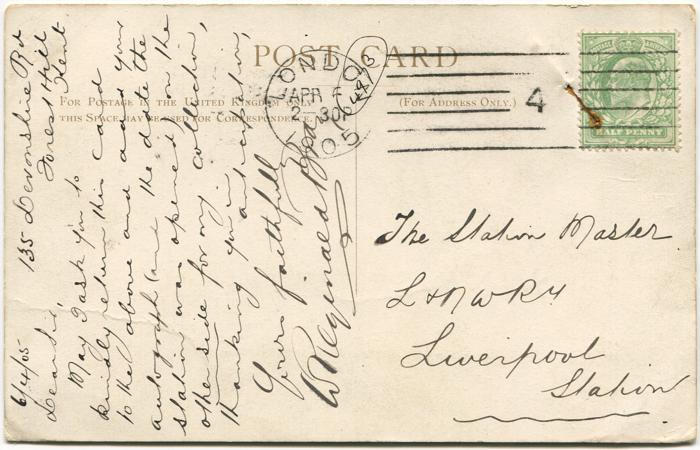 POST CARD
FOR POSTAGE IN THE UNITED KINGDOM ONLY
THIS SPACE MAY BE USED FOR CORRESPONDENCE.
(FOR ADDRESS ONLY.)
LONDON
APR 6
2 30
05
4
HALF PENNY
135 Devonshire Rd
Forest Hill
Kent
6/4/05
Dear Sir,
May I ask you to
kindly return this card
to the above and add your
autograph (and the date the
station was opened) on the
other side for my collection,
thanking you in anticipation,
Yours faithfully
W Reginald
The Station Master
L & N W RY
Liverpool
Station